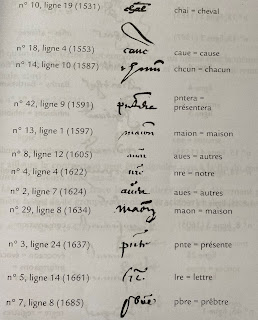 n° 10, ligne 19 (1531) chal chai = cheval
n° 18, ligne 4 (1553) caue caue = cause
n° 14, ligne 10 (1587) chcun = chacun
n° 42, ligne 9 (1591) pntera =
présentera
n° 13, ligne 1 (1597) maion maion = maison
n° 8, ligne 12 (1605) aues = autres
n° 4, ligne 4 (1622) nre nre = notre
n° 2, ligne 7 (1624) aues = autres
n° 29, ligne 8 (1634) maon maon = maison
n° 3, ligne 24 (1637) pnte pnte = présente
n° 5, ligne 14 (1661) lre lre = lettre
n° 7, ligne 8 (1685) pbre pbre = prêbtre